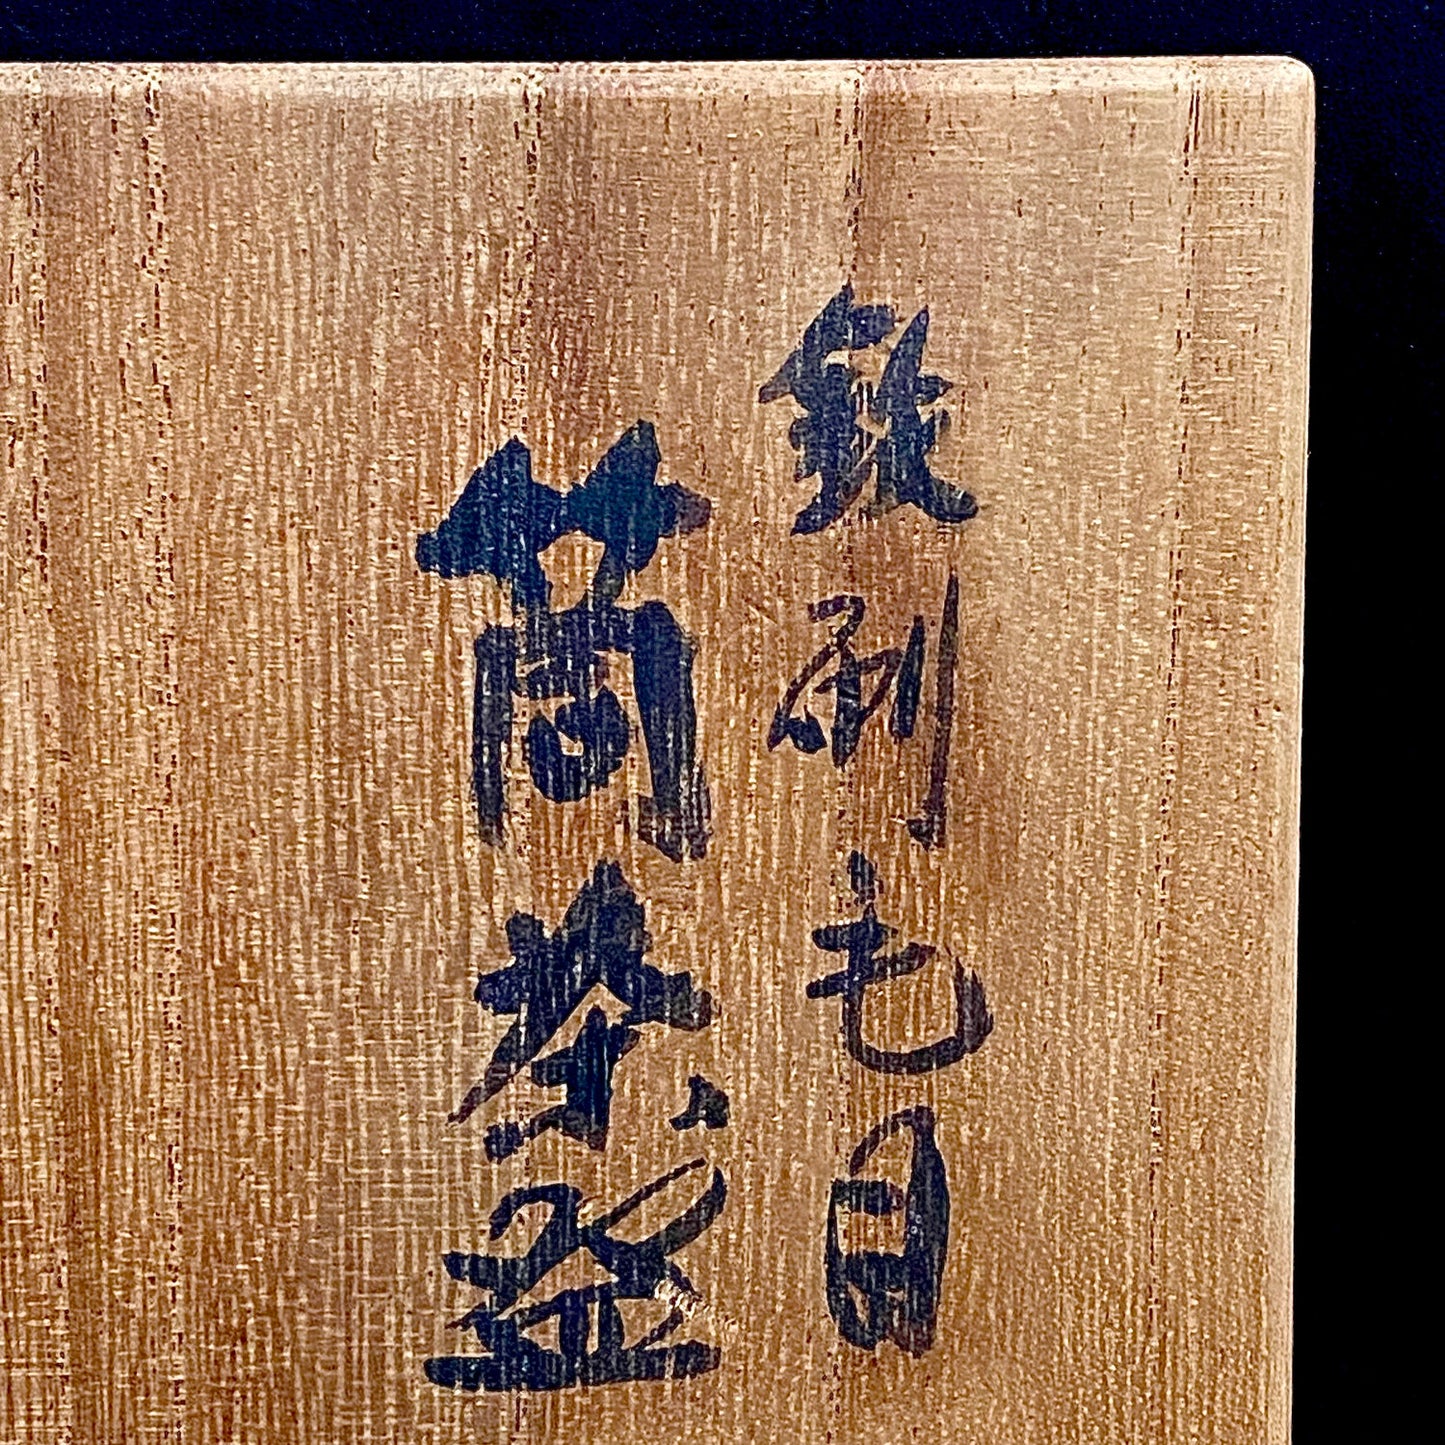 鉄刷毛目
筒茶盌